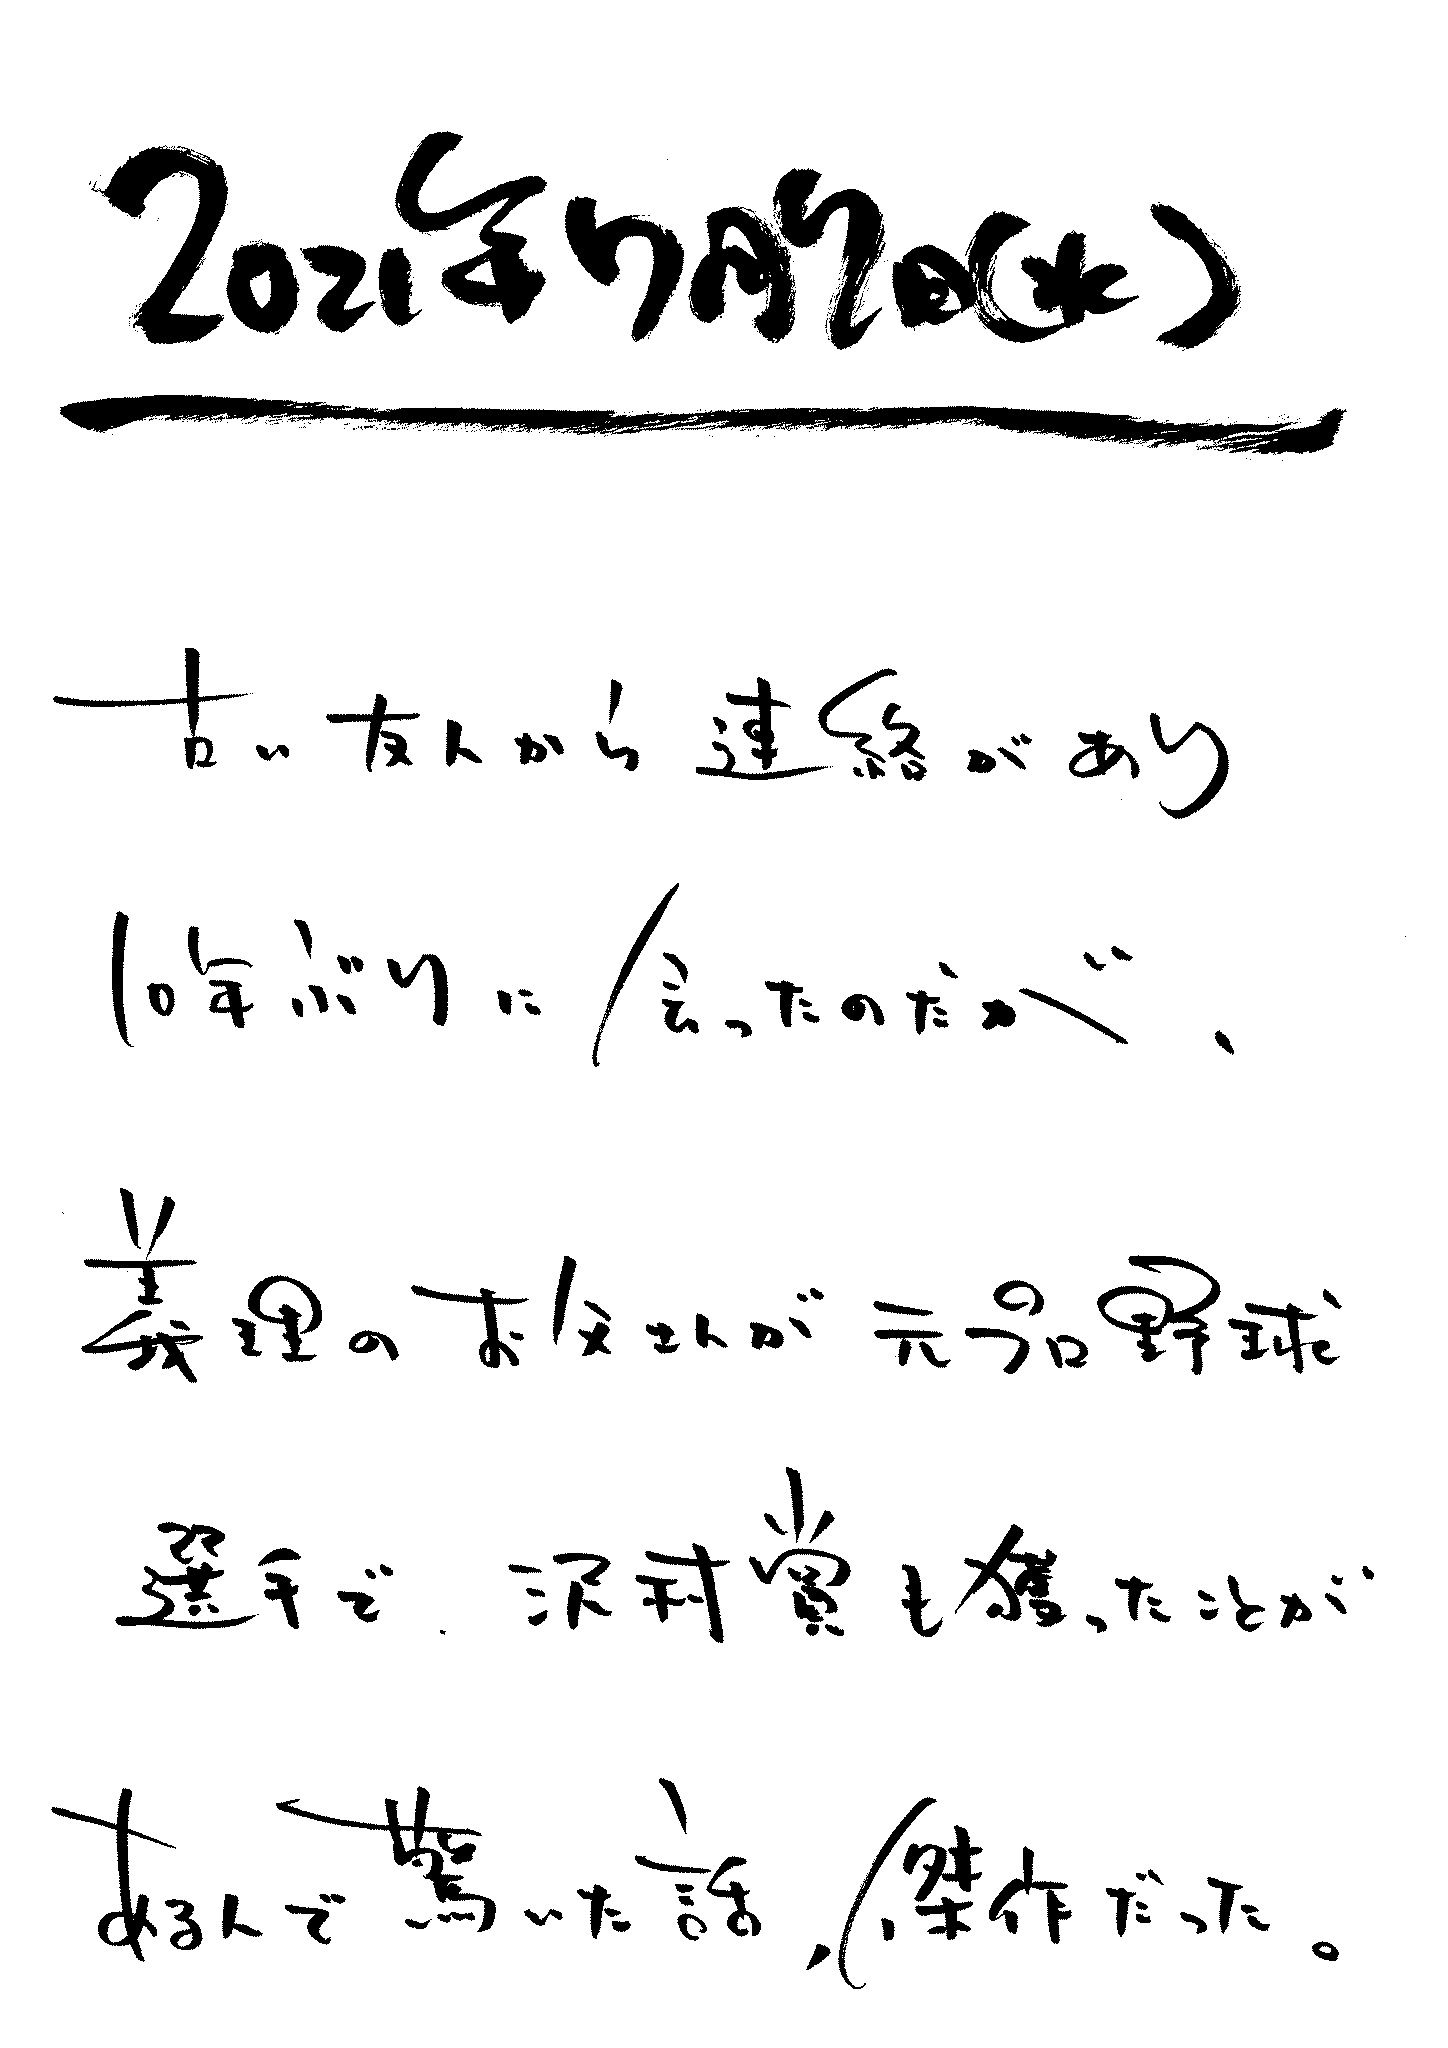 2021年7月7日(水)
古い友人から連絡があり
10年ぶりに会ったのだが、
義理のお父さんが元プロ野球
選手で、沢村賞も獲ったことが
あるんで驚いた話、傑作だった。